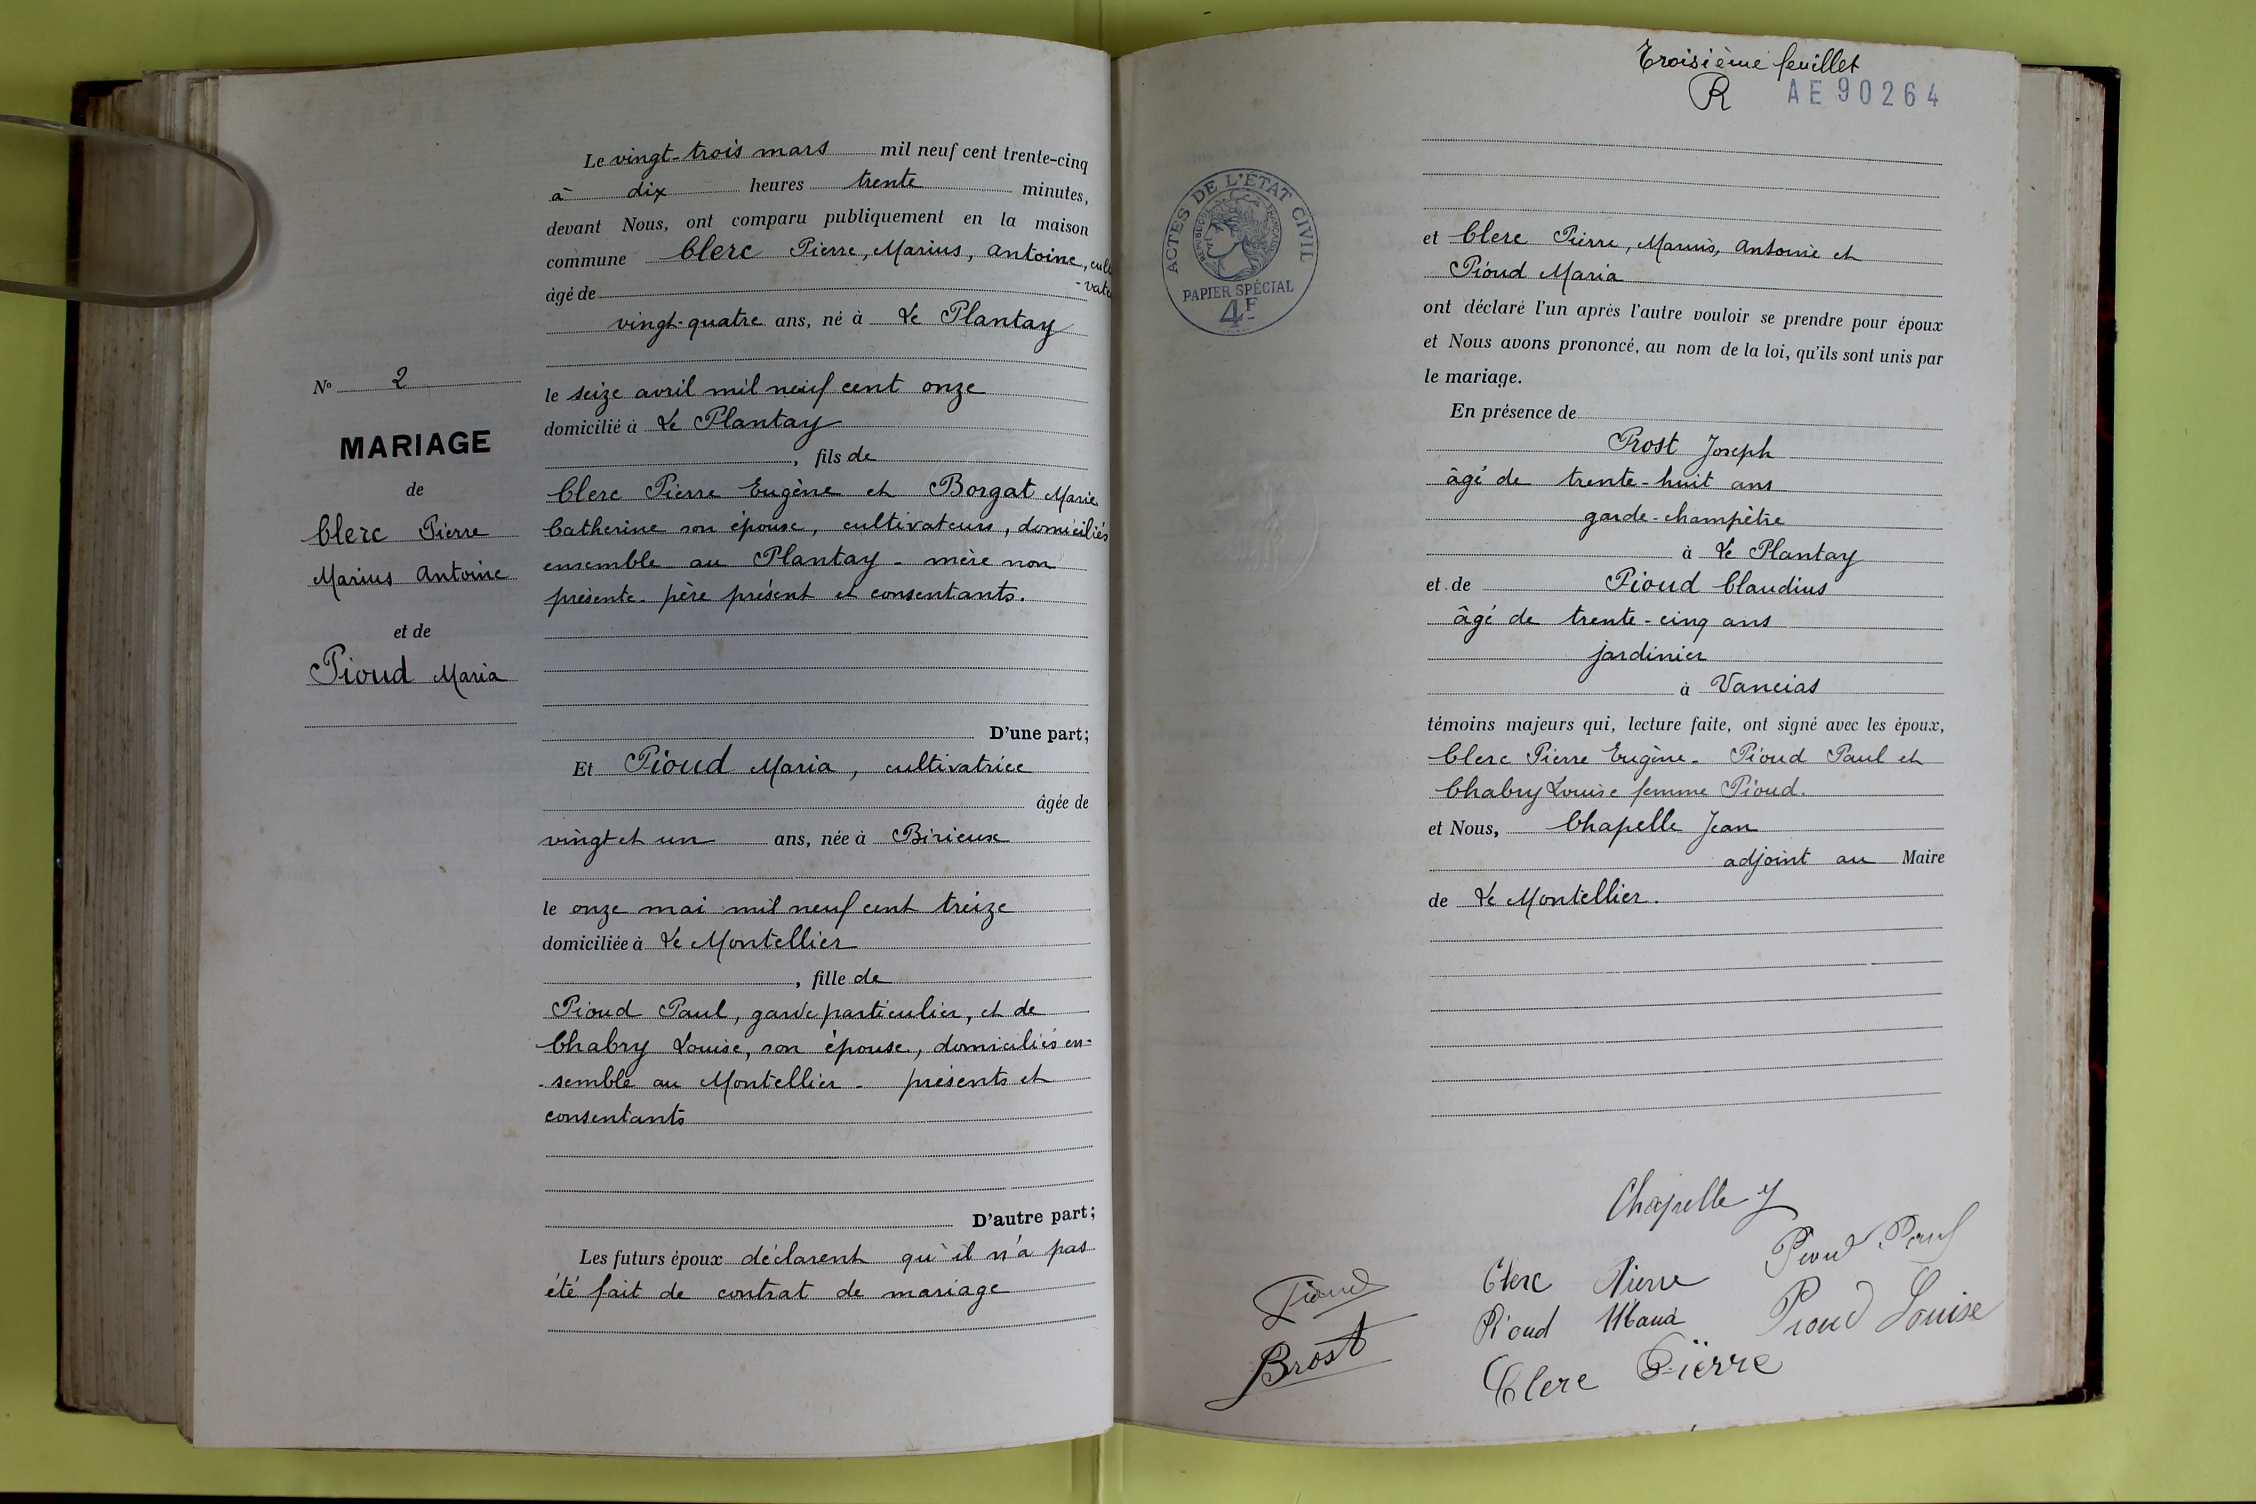 Le vingt-trois mars mil neuf cent trente-cinq
à dix heures trente minutes,
devant Nous, ont comparu publiquement en la maison
commune Clerc Pierre, Marius, Antoine, culti
-vate
âgé de
vingt-quatre ans, né à Le Plantay
le seize avril mil neuf cent onze
domicilié à Le Plantay
, fils de
Clerc Pierre Eugène et Borgat Marie
Catherine son épouse, cultivateurs, domiciliés
ensemble au Plantay - mère non
présente - père présent et consentants.
D'une part;
N° 2
MARIAGE
de
Clerc Pierre
Marius Antoine
et de
Pioud Maria
Et Pioud Maria, cultivatrice
âgée de
vingt et un ans, née à Birieux
le onze mai mil neuf cent treize
domiciliée à Le Montellier
, fille de
Pioud Paul, garde particulier, et de
Chabry Louise, son épouse, domiciliés en-
-semble au Montellier - présents et
consentants
D'autre part;
Les futurs époux déclarent qu'il n'a pas
été fait de contrat de mariage
Troisième feuillet
R AE90264
ACTES DE L'ÉTAT CIVIL
RÉPUBLIQUE FRANÇAISE
PAPIER SPÉCIAL
4F
et Clerc Pierre, Marius, Antoine et
Pioud Maria
ont déclaré l'un après l'autre vouloir se prendre pour époux
et Nous avons prononcé, au nom de la loi, qu'ils sont unis par
le mariage.
En présence de
Prost Joseph
âgé de trente-huit ans
garde-champêtre
à Le Plantay
et de Pioud Claudius
âgé de trente-cinq ans
jardinier
à Vancias
témoins majeurs qui, lecture faite, ont signé avec les époux,
Clerc Pierre Eugène - Pioud Paul et
Chabry Louise femme Pioud.
et Nous, Chapelle Jean
adjoint au Maire
de Le Montellier.
Chapelle J
Pioud Paul
Clerc Pierre
Pioud
Pioud Maria
Pioud Louise
Brost
Clerc Pierre